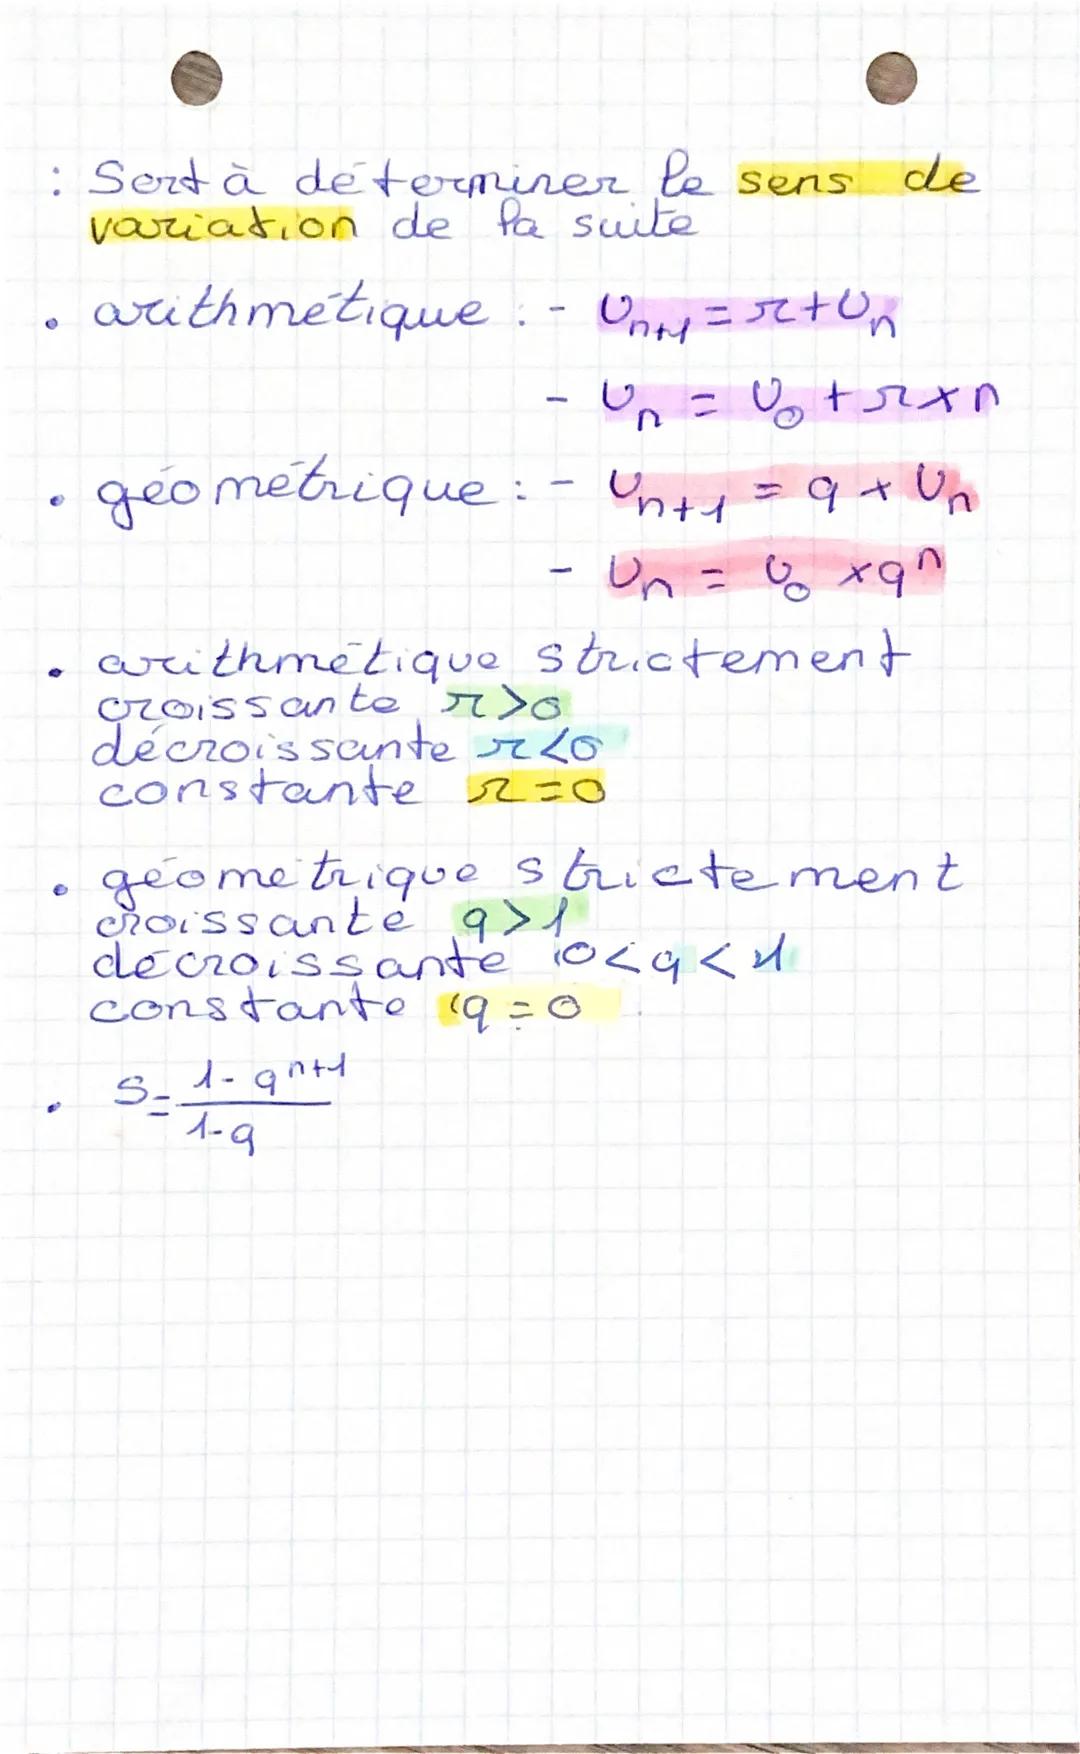 : Sert à déterminer le sens de
variation de la suite
• arithmétique : - Un+1 = r + Un
- Un = U0 + r × n
• géométrique : - Un+1 = q × Un
- Un = U0 × qⁿ
• arithmétique strictement
croissante r>0
décroissante r<0
constante r=0
• géométrique strictement
croissante q>1
décroissante 0<q<1
constante q=0
• S = 1-qⁿ⁺¹
1-q